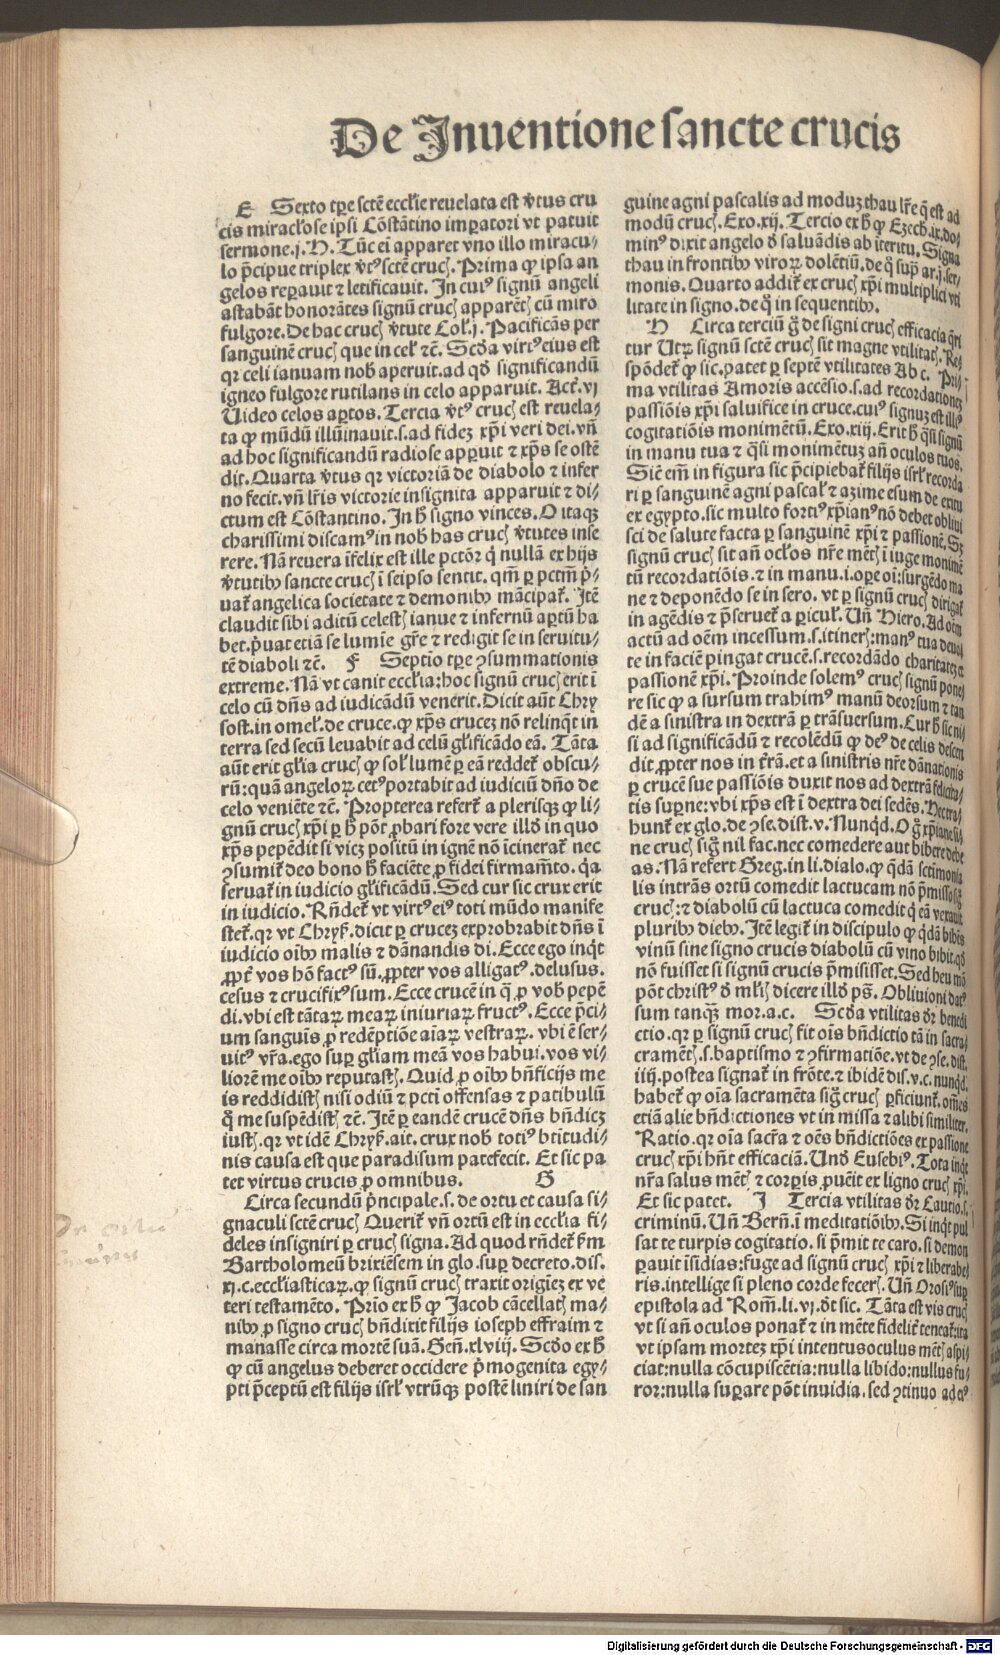 De Inuentione sancte crucis
E Sexto tꝑe sctē ecclīe reuelata est v̓tus cru
cis miracl̓ose ipsi Cōstātino imꝑatori vt patuit
sermone.j.H. Tūc ei apparet vno illo miracu⸗
lo p̄cipue triplex v̓tꝰ sctē crucꝭ. Prima ꝙ ipsa an
gelos reꝑauit ⁊ letificauit. In cuiꝰ signū angeli
astabāt honorātes signū crucꝭ apparētꝭ cū miro
fulgore. De hac crucꝭ v̓tute Col̓.j. Pacificās per
sanguinē crucꝭ que in cel̓ ⁊c̄. Scd̓a virtꝰ eius est
qꝛ celi ianuam nob̓ aperuit. ad qd̓ significandū
igneo fulgore rutilans in celo apparuit. Act̓.vj
Uideo celos aꝑtos. Tercia v̓tꝰ crucꝭ est reuela⸗
ta ꝙ mūdū illūinauit. s. ad fideꝫ xp̄i veri dei. vn̄
ad hoc significandū radiose apꝑuit ⁊ xp̄s se ostē
dit. Quarta v̓tus qꝛ victoriā de diabolo ⁊ infer
no fecit. vn̄ lr̄is victorie insignita apparuit ⁊ di⸗
ctum est Cōstantino. In h̓ signo vinces. O itaqꝫ
charissimi discamꝰ in nob̓ has crucꝭ v̓tutes inse
rere. Nā reuera īfelix est ille pctōr q̓ nullā ex hijs
v̓tutibꝰ sancte crucꝭ ī seipso sentit. qm̄ ꝑ pctm̄ p̓⸗
uat̓ angelica societate ⁊ demonibꝰ mācipat̓. Itē
claudit sibi aditū celestꝭ ianue ⁊ infernū aꝑtū ha
bet. p̓uat etiā se lumīe gr̄e ⁊ redigit se in seruitu⸗
tē diaboli ⁊c̄. F Septīo tꝑe ꝯsummationis
extreme. Nā vt canit ecclīa: hoc signū crucꝭ erit ī
celo cū dn̄s ad iudicādū venerit. Dicit aūt Chry
sost. in omel̓. de cruce. ꝙ xp̄s cruceꝫ nō relinq̓t in
terra sed secū leuabit ad celū gl̓ificādo eā. Tāta
aūt erit gl̓ia crucꝭ ꝙ sol̓ lumē ꝑ eā reddet̓ obscu⸗
rū: quā angeloꝝ cetꝰ portabit ad iudiciū dn̄o de
celo veniēte ⁊c̄. Propterea refert̓ a plerisqꝫ ꝙ li⸗
gnū crucꝭ xp̄i ꝑ h̓ pōt ꝓbari fore vere illd̓ in quo
xp̄s pepēdit si vicꝫ positū in ignē nō īcinerat̓ nec
ꝯsumit̓ deo bono h̓ faciēte ꝓ fidei firmam̄to. q̓a
seruat̓ in iudicio gl̓ificādū. Sed cur sic crux erit
in iudicio. Rn̄det̓ vt virtꝰ eiꝰ toti mūdo manife
stet̓. qꝛ vt Chryß. dicit ꝑ cruceꝫ exprobrabit dn̄s ī
iudicio oībꝰ malis ⁊ dānandis di. Ecce ego inq̓t
ꝓpt̓ vos hō factꝰ sū. ꝓpter vos alligatꝰ. delusus.
cesus ⁊ crucifixꝰ sum. Ecce crucē in q̓ ꝓ vob̓ pepē
di. vbi est tātaꝝ meaꝝ iniuriaꝝ fructꝰ. Ecce p̄ci⸗
um sanguīs ꝓ redēptiōe aīaꝝ vestraꝝ. vbi ē ser⸗
uitꝰ vr̄a. ego suꝑ gl̓iam meā vos habui. vos vi⸗
liorē me oībꝰ reputastꝭ. Quid ꝓ oībꝰ bn̄ficijs me
is reddidistꝭ nisi odiū ⁊ pcti offensas ⁊ patibulū
q̓ me suspēdistꝭ ⁊c̄. Itē ꝑ eandē crucē dn̄s bn̄dicꝫ
iustꝭ. qꝛ vt idē Chryß. ait. crux nob̓ totiꝰ btītudi⸗
nis causa est que paradisum patefecit. Et sic pa
tet virtus crucis ꝓ omnibus. G
Circa secundū p̓ncipale. s. de ortu et causa si⸗
gnaculi sctē crucꝭ Querit̓ vn̄ ortū est in ecclīa fi⸗
deles insigniri ꝑ crucꝭ signa. Ad quod rn̄det̓ ẜm
Bartholomeū brixiēsem in glo. suꝑ decreto. dis.
xj.c. eccl̓iasticaꝝ. ꝙ signū crucꝭ traxit origīeꝫ ex ve
teri testamēto. Prīo ex h̓ ꝙ Jacob cācellatꝭ ma⸗
nibꝰ ꝓ signo crucꝭ bn̄dixit filijs ioseph effraim ⁊
manasse circa mortē suā. Gen̄.xlviij. Scd̓o ex h̓
ꝙ cū angelus deberet occidere p̓mogenita egy⸗
pti p̄ceptū est filijs isrl̓ vtrūqꝫ postē liniri de san
guine agni pascalis ad moduꝫ thau lr̄e q̄ est ad
modū crucꝭ. Exo.xij. Tercio ex h̓ ꝙ Ezech.ix. do⸗
minꝰ dixit angelo d̓ saluādis ab īteritu. Signa
thau in frontibꝰ viroꝝ dolētiū. de q̓ sup̄ ar.j. ser⸗
monis. Quarto addit̓ ex crucꝭ xp̄i multiplici vti
litate in signo. de q̓ in sequentibꝰ.
H Circa terciū g̊ de signi crucꝭ efficacia q̄ri
tur Utꝝ signū sctē crucꝭ sit magne vtilitatꝭ. Re⸗
spōdet̓ ꝙ sic. patet ꝑ septē vtilitates Ab c. Pri⸗
ma vtilitas Amoris accēsio. s. ad recordationeꝫ
passiōis xp̄i saluifice in cruce. cuiꝰ signuꝫ est illiꝰ
cogitatiōis monimētū. Exo.xiij. Erit h̓ q̓si signū
in manu tua ⁊ q̓si monimētuꝫ an̄ oculos tuos.
Sic̄ em̄ in figura sic p̄cipiebat̓ filijs isrl̓ recorda
ri ꝑ sanguinē agni pascal̓ ⁊ azime esum de exitu
ex egypto. sic multo fortiꝰ xp̄ianꝰ nō debet obliui
sci de salute facta ꝑ sanguinē xp̄i ⁊ passionē. Sꝫ
signū crucꝭ sit an̄ ocl̓os nr̄e mētꝭ ī iuge monimē
tū recordatiōis. ⁊ in manu. i. oꝑe oī: surgēdo ma
ne ⁊ deponēdo se in sero. vt ꝑ signū crucꝭ dirigat̓
in agēdis ⁊ p̄seruet̓ a ꝑicul̓. Un̄ Hiero. Ad oēm
actū ad oēm incessum. s. itinerꝭ: manꝰ tua deuo⸗
te in faciē pingat crucē. s. recordādo charitateꝫ ⁊
passionē xp̄i. Proinde solemꝰ crucꝭ signū pone⸗
re sic ꝙ a sursum trahimꝰ manū deorsum ⁊ tan
dē a sinistra in dextrā ꝑ trāsuersum. Cur h̓ sic ni⸗
si ad significādū ⁊ recolēdū ꝙ deꝰ de celis descen
dit ꝓpter nos in t̓rā. et a sinistris nr̄e dānationis
ꝑ crucē sue passiōis duxit nos ad dextrā felicita⸗
tis suꝑne: vbi xp̄s est ī dextra dei sedēs. Hec tra⸗
hunt̓ ex glo. de ꝯse. dist.v. Nunqd̓. O g̊ xp̄iane si⸗
ne crucꝭ sig̊ nil fac. nec comedere aut bibere debe
as. Nā refert Greg. in li. dialo. ꝙ q̓dā sctīmonia
lis intrās ortū comedit lactucam nō p̄misso sig̊
crucꝭ: ⁊ diabolū cū lactuca comedit q̓ eā vexauit
pluribꝰ diebꝰ. Itē legit̓ in discipulo ꝙ q̓dā bibēs
vinū sine signo crucis diabolū cū vino bibit. qd̓
nō fuisset si signū crucis p̄misisset. Sed heu mō
pōt christꝰ d̓ ml̓tꝭ dicere illd̓ ps̄. Obliuioni datꝰ
sum tanqꝫ mor. a.c. Scd̓a vtilitas dr̄ benedi
ctio. qꝛ ꝑ signū crucꝭ fit oīs bn̄dictio tā in sacra⸗
cramētꝭ. s. baptismo ⁊ ꝯfirmatiōe. vt de ꝯse. dist.
iiij. postea signat̓ in frōte. ⁊ ibidē dis.v.c. nunqd̓.
habet̓ ꝙ oīa sacramēta sig̊ crucꝭ ꝑficiunt̓. omēs
etiā alie bn̄dictiones vt in missa ⁊ alibi similiter.
Ratio. qꝛ oīa sacr̄a ⁊ oēs bn̄dictiōes ex passione
crucꝭ xp̄i hn̄t efficaciā. Und̓ Eusebiꝰ. Tota inq̓t
nr̄a salus mētꝭ ⁊ corpīs ꝓuēit ex ligno crucꝭ xp̄i.
Et sic patet. I Tercia vtilitas dr̄ Cautio. s.
criminū. Un̄ Bern̄. ī meditatiōibꝰ. Si inq̓t pul
sat te turpis cogitatio. si p̄mit te caro. si demon
ꝑauit īsidias: fuge ad signū crucꝭ xp̄i ⁊ liberabe⸗
ris. intellige si pleno corde fecerꝭ. Un̄ Orosiꝰ suꝑ
epistola ad Rom̄. li.vj. d̓t sic. Tāta est vis crucꝭ
vt si an̄ oculos ponat̓ ⁊ in mēte fidelit̓ teneat̓: ita
vt ipsam morteꝫ xp̄i intentus oculus mētꝭ aspi⸗
ciat: nulla cōcupiscētia: nulla libido: nullus fu⸗
ror: nulla suꝑare pōt inuidia. sed ꝯtinuo ad eiꝰ
De ortu
Digitalisierung gefördert durch die Deutsche Forschungsgemeinschaft - DFG